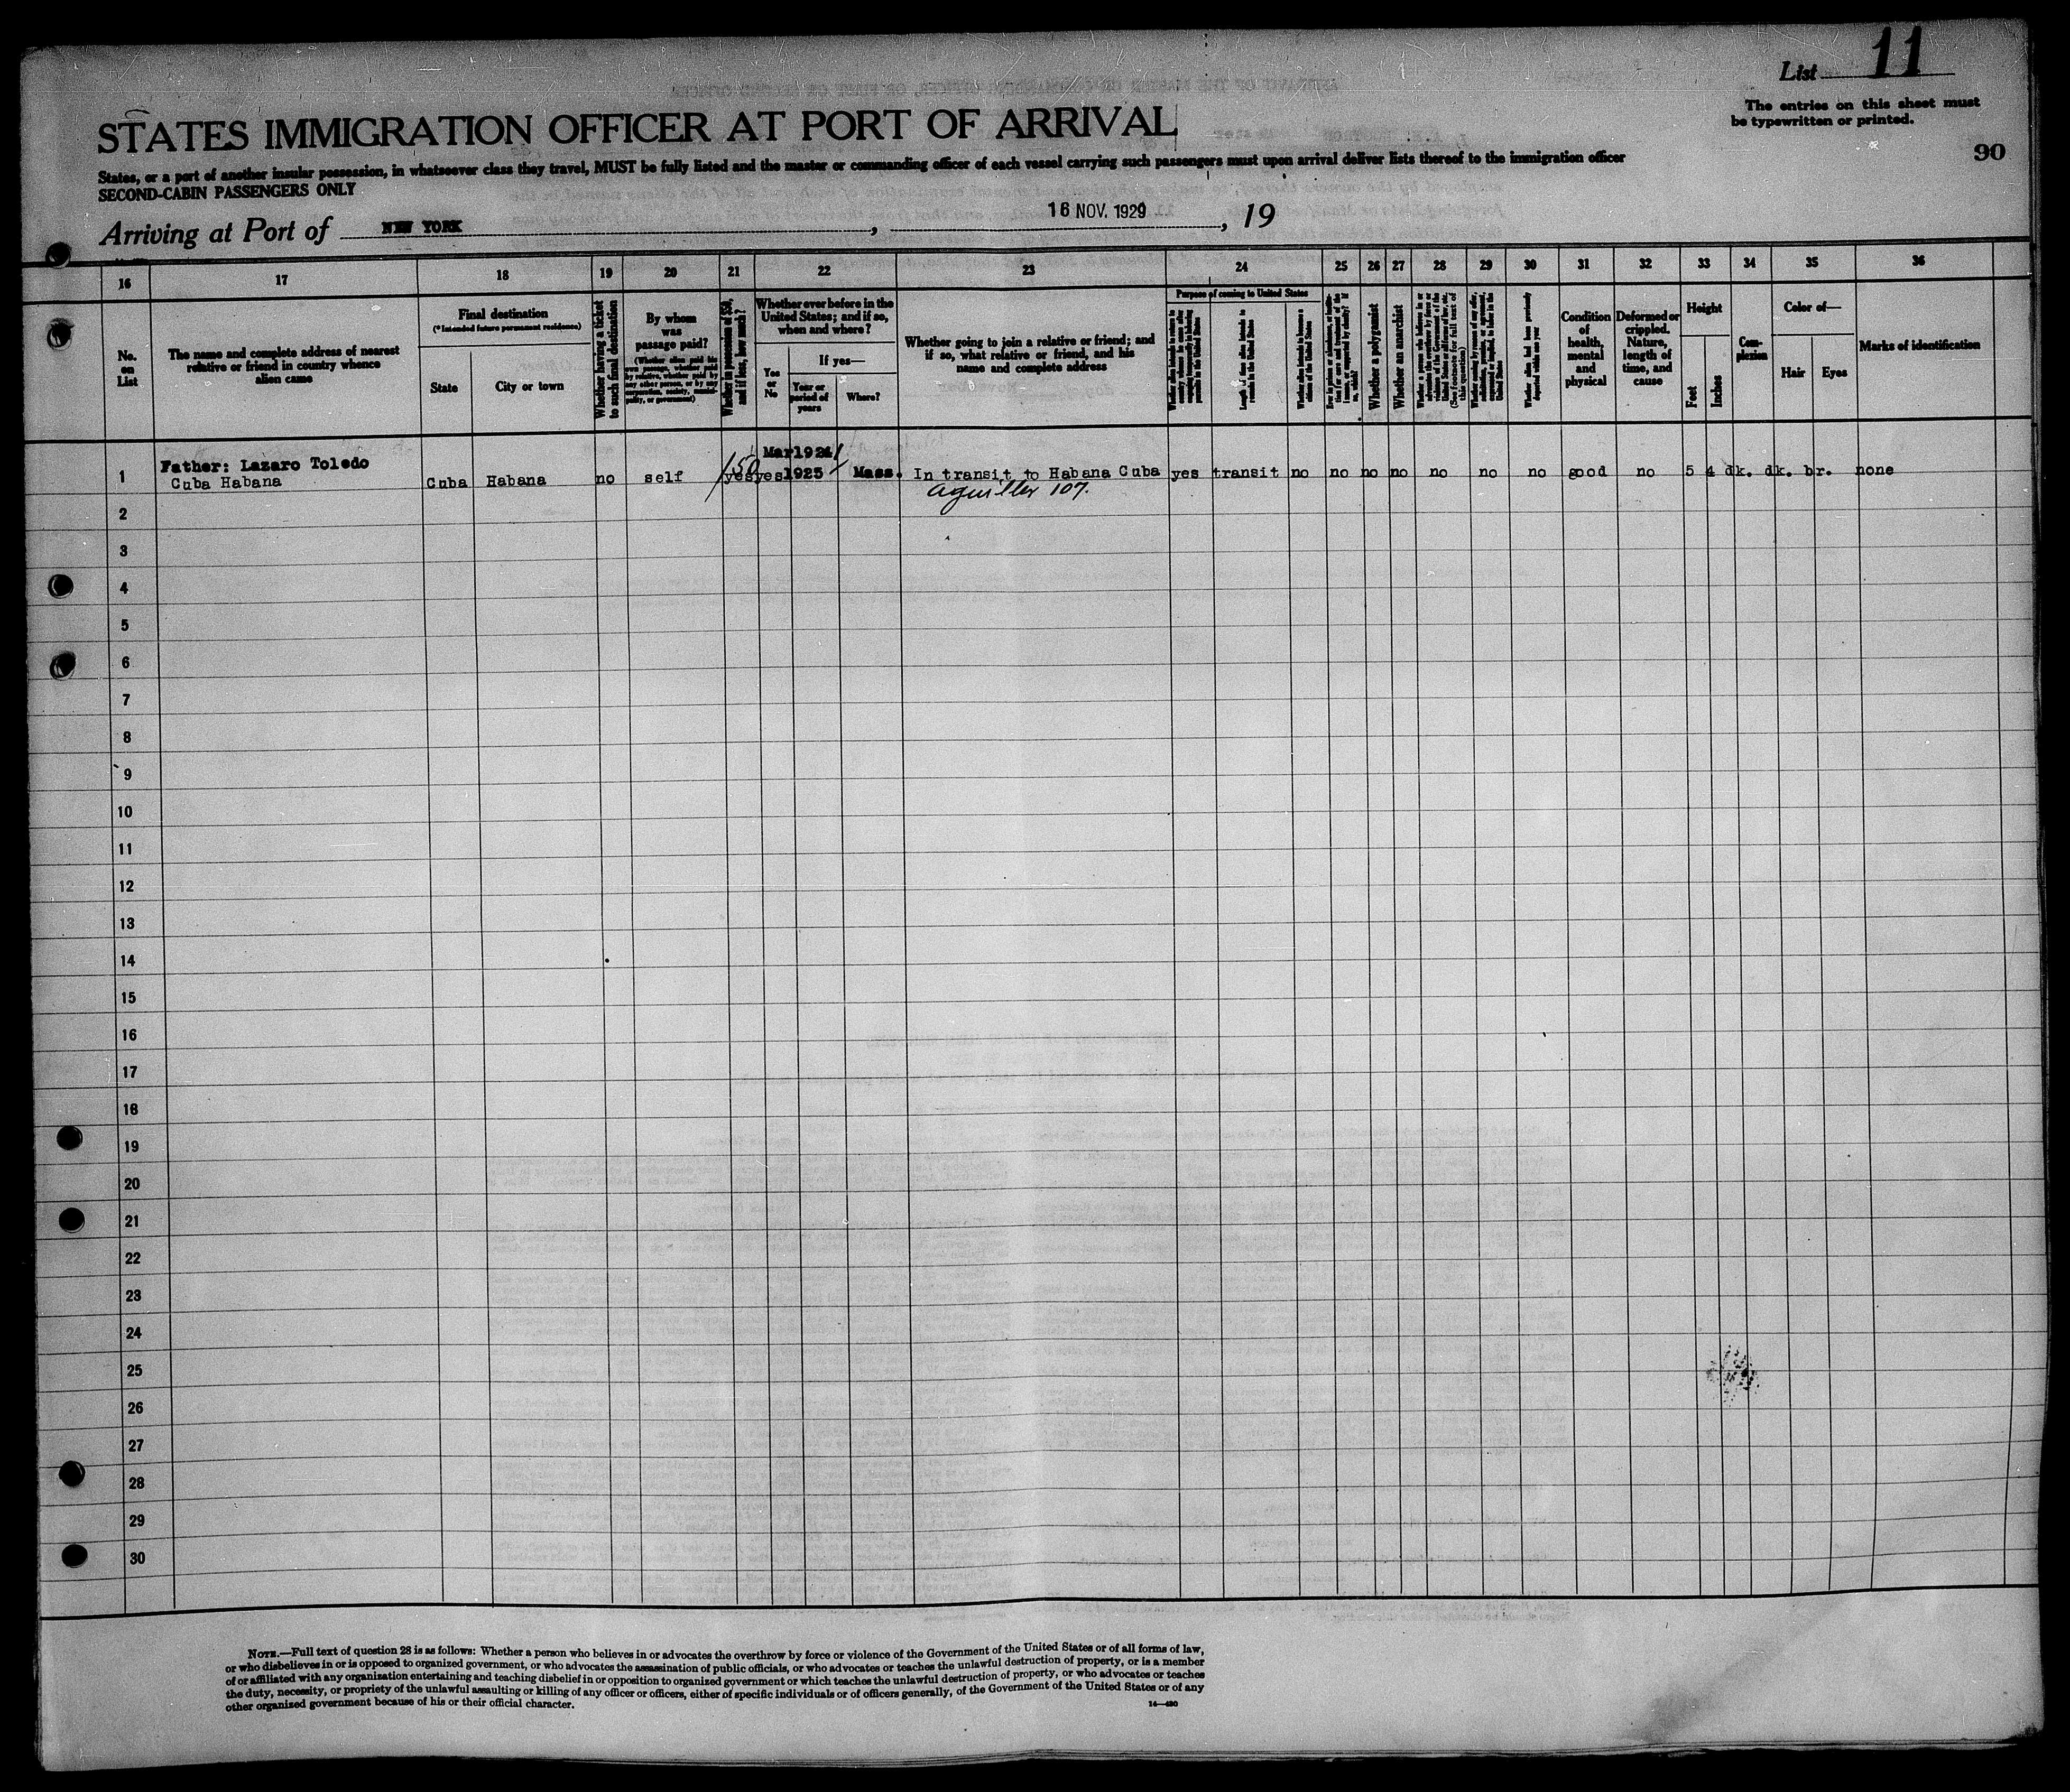 List 11
The entries on this sheet must
be typewritten or printed.
90
STATES IMMIGRATION OFFICER AT PORT OF ARRIVAL
States, or a port of another insular possession, in whatsoever class they travel, MUST be fully listed and the master or commanding officer of each vessel carrying such passengers must upon arrival deliver lists thereof to the immigration officer
SECOND-CABIN PASSENGERS ONLY
Arriving at Port of NEW YORK, 16 NOV. 1929, 19
16 17 18 19 20 21 22 23 24 25 26 27 28 29 30 31 32 33 34 35 36
No.
on
List
The name and complete address of nearest
relative or friend in country whence
alien came
Final destination
(*Intended future permanent residence)
State
City or town
Whether having a ticket
to such final destination
By whom
was
passage paid?
(Whether alien paid his
own passage, whether paid
by relative, whether paid by
any other person, or by any
corporation, society, munici-
pality, or government)
Whether in possession of $50,
and if less, how much?
Whether ever before in the
United States; and if so,
when and where?
Yes
or
No
If yes—
Year or
period of
years
Where?
Whether going to join a relative or friend; and
if so, what relative or friend, and his
name and complete address
Purpose of coming to United States
Length of time alien intends to
remain in the United States
Whether alien intends to become a
citizen of the United States
Whether a polygamist
Whether an anarchist
(See footnote for full text of
this question)
Whether alien had been previously
deported within one year
Condition
of
health,
mental
and
physical
Deformed or
crippled.
Nature,
length of
time, and
cause
Height
Feet
Inches
Com-
plexion
Color of—
Hair
Eyes
Marks of identification
Mar 1921
150
1 Father: Lazaro Toledo Cuba Habana no self yes yes 1925 Mass. In transit to Habana Cuba yes transit no no no no no no no good no 5 4 dk. dk. br. none
Cuba Habana
107.
2
3
4
5
6
7
8
9
10
11
12
13
14
15
16
17
18
19
20
21
22
23
24
25
26
27
28
29
30
NOTE.—Full text of question 28 is as follows: Whether a person who believes in or advocates the overthrow by force or violence of the Government of the United States or of all forms of law,
or who disbelieves in or is opposed to organized government, or who advocates the assassination of public officials, or who advocates or teaches the unlawful destruction of property, or is a member
of or affiliated with any organization entertaining and teaching disbelief in or opposition to organized government or which teaches the unlawful destruction of property, or who advocates or teaches
the duty, necessity, or propriety of the unlawful assaulting or killing of any officer or officers, either of specific individuals or of officers generally, of the Government of the United States or of any
other organized government because of his or their official character.
14—430